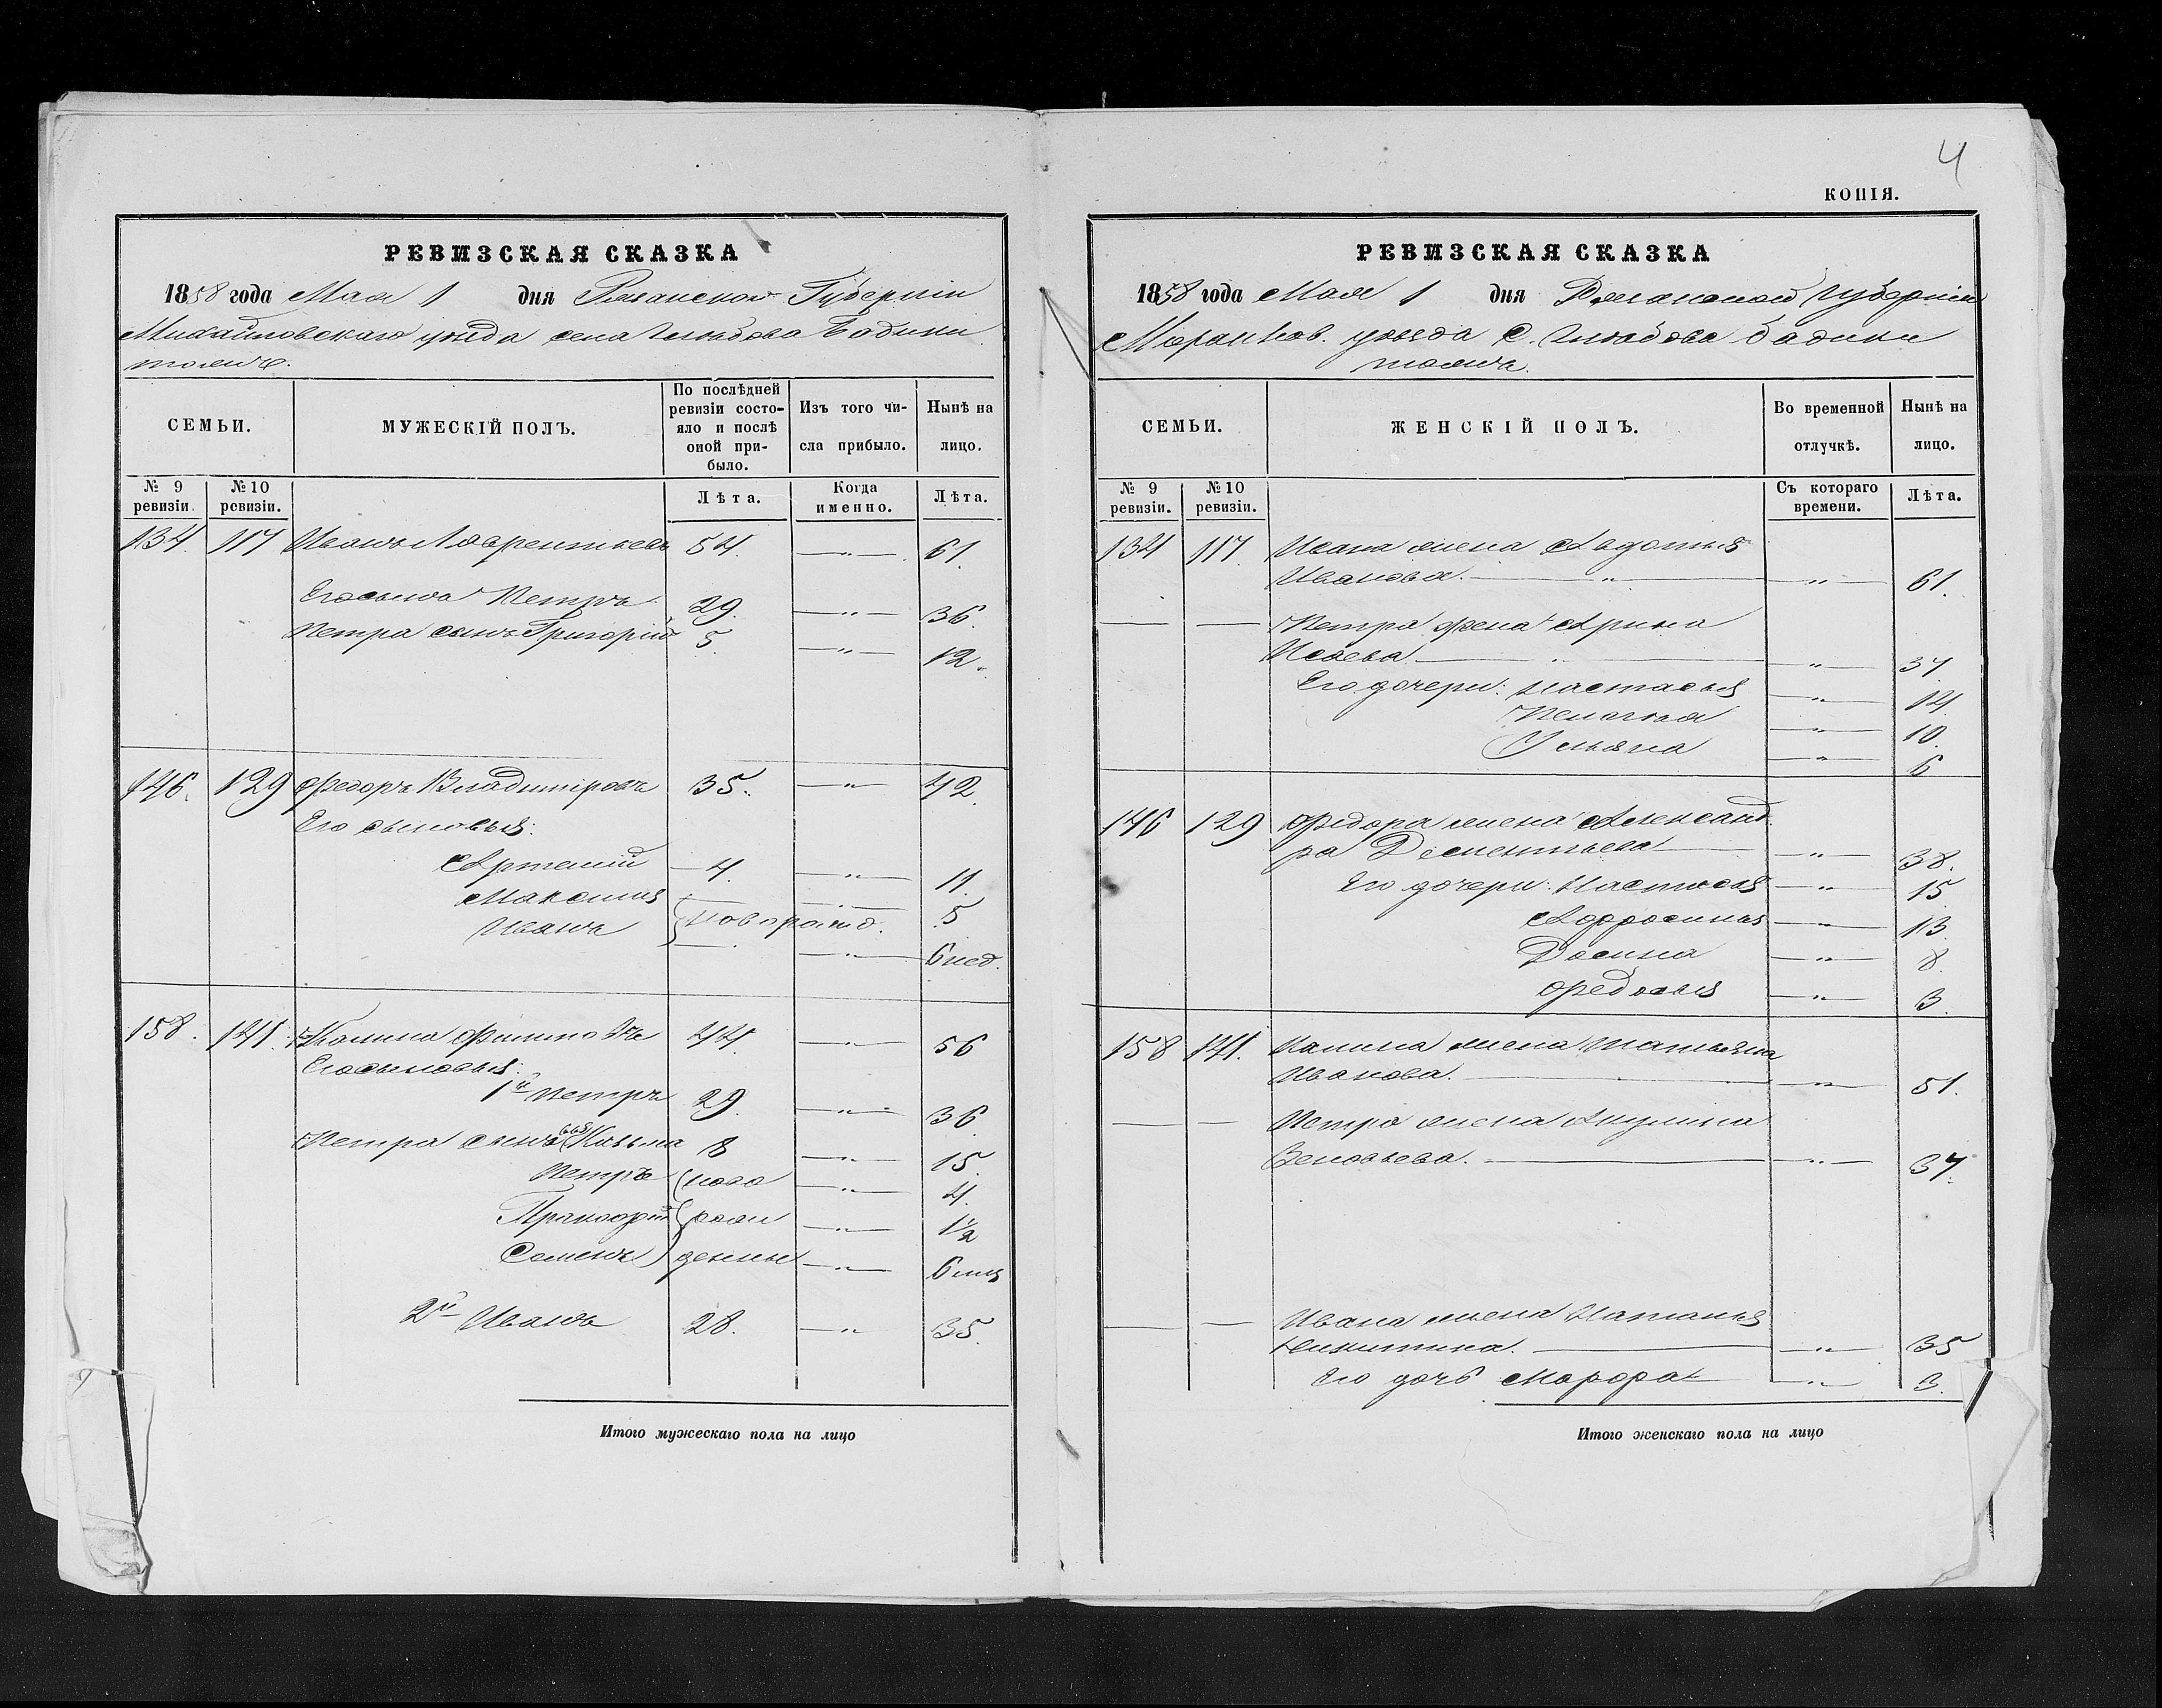 4
КОПІЯ.
РЕВИЗСКАЯ СКАЗКА
1858 года Мая 1 дня Рязанской Губерніи
Михайловскаго уѣзда села
СЕМЬИ.
МУЖЕСКІЙ ПОЛЪ.
По послѣдней ревизіи состояло и послѣ оной прибыло.
Изъ того числа прибыло.
Нынѣ на лицо.
№ 9 ревизіи.
№ 10 ревизіи.
Лѣта.
Когда именно.
Лѣта.
134. 117 Иванъ Лаврентьевъ 54. — " — 61.
Его сынъ Петръ 29. — " — 36.
Петра сынъ Григорій 5. — " — 12.
146. 129 Федоръ Владиміровъ 35. — " — 42.
Его сыновья:
Артемій 4. — " — 11.
Максимъ 5
Иванъ новорожд. — " — 6 нед.
158. 141. Калина Филиповъ 44. — " — 56
Его сыновья:
1й Петръ 29. — " — 36
Петра сынъ Козьма 8 — " — 15.
Петръ ново — " — 4.
Пракофій рож — " — 1½
Семенъ денны — " — 6 мцъ
2й Иванъ 28. — " 35.
Итого мужескаго пола на лицо
РЕВИЗСКАЯ СКАЗКА
1858 года Мая 1 дня Рязанской губерніи
уѣзда С.
СЕМЬИ.
ЖЕНСКІЙ ПОЛЪ.
Во временной отлучкѣ.
Нынѣ на лицо.
№ 9 ревизіи.
№ 10 ревизіи.
Съ котораго времени.
Лѣта.
134 117. Ивана жена Авдотья
Иванова. — " — " — 61.
— — Петра жена Арина
Исаева — " — " — 37
Его дочери: Настасья — " — 14
Пелагея — " — 10.
Ульяна — " — 6
146 129 Федора жена Александ
ра Дементьева — " — 38.
Его дочери: Настасья — " — 15
Афросинья — " — 13
Домна — " — 8.
Федосья — " — 3
158 141. Калина жена Татьяна
Иванова. — " — 51.
— — Петра жена Акулина
Зеновьева. — " — 37.
— — Ивана жена Наталья
Никитина. — " — 35
Его дочь Марфа — " — 3.
Итого женскаго пола на лицо